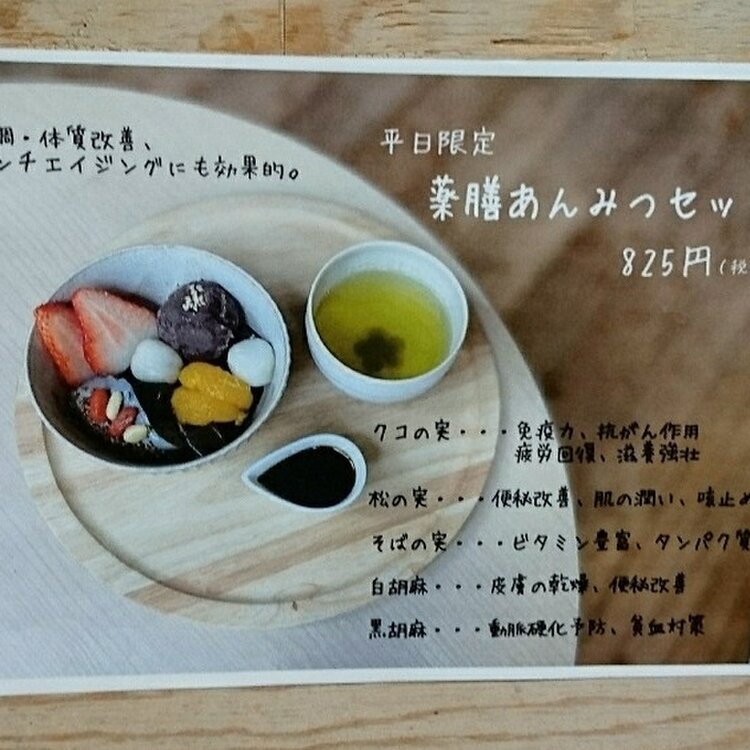 調・体質改善、
ンチエイジングにも効果的。
平日限定
薬膳あんみつセッ
825円(税
クコの実・・・免疫力、抗がん作用
疲労回復、滋養強壮
松の実・・・便秘改善、肌の潤い、咳止め
そばの実・・・ビタミン豊富、タンパク質
白胡麻・・・皮膚の乾燥、便秘改善
黒胡麻・・・動脈硬化予防、貧血対策